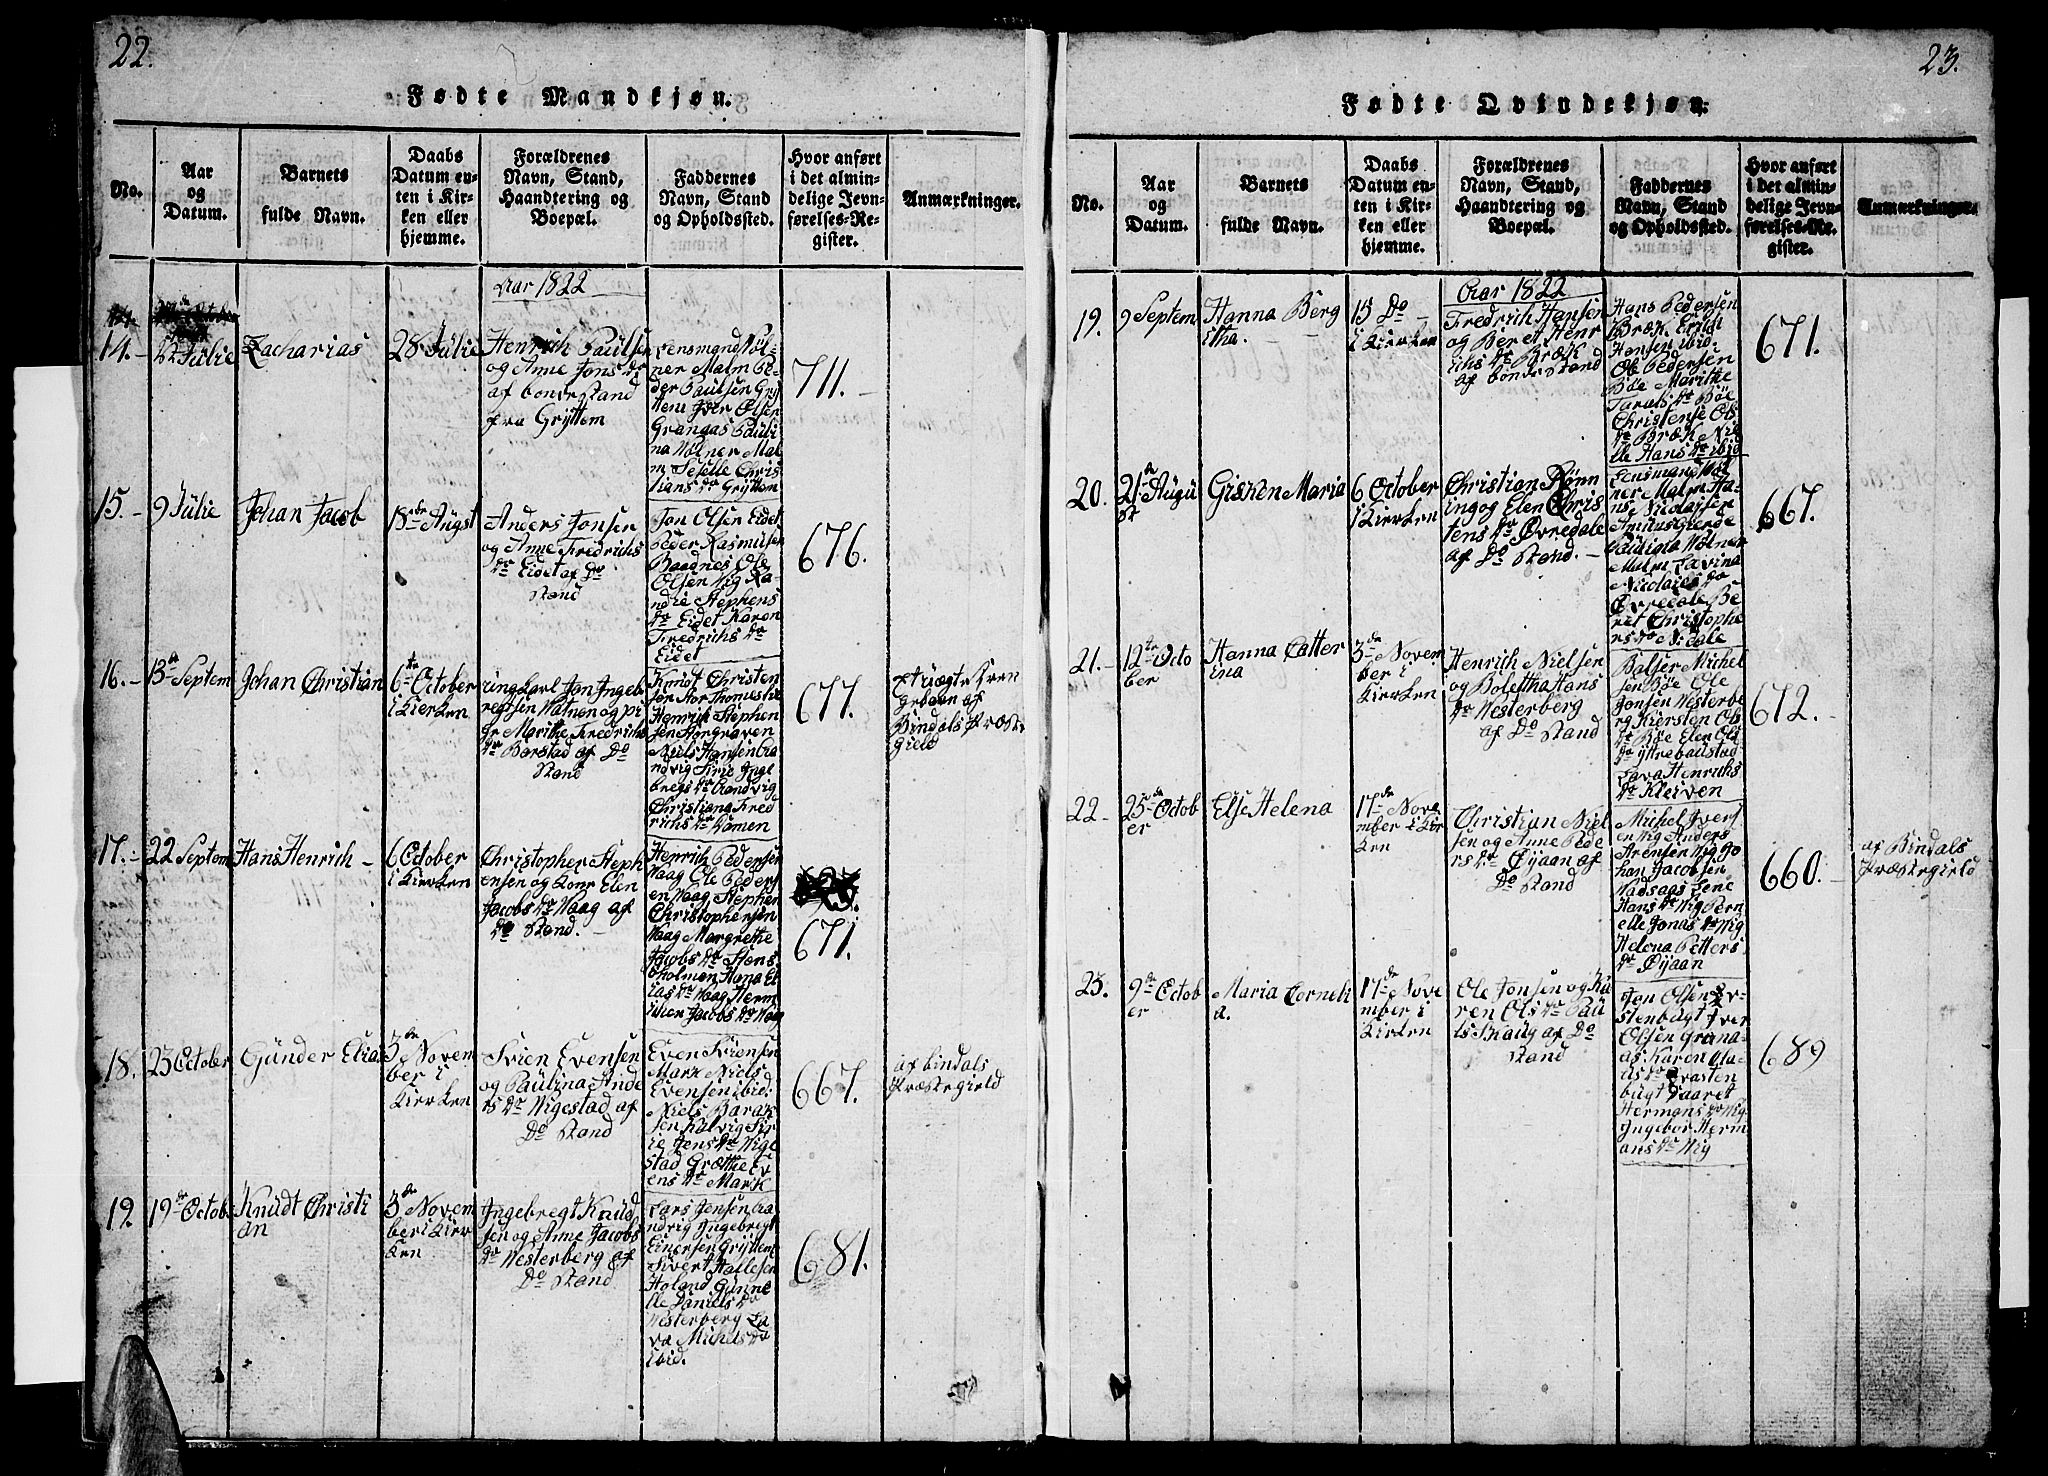 22.
Fødte Mandkjøn.
No.
Aar
og
Datum.
Barnets
fulde Navn.
Daabs
Datum en-
ten i Kir-
ken eller
hjemme.
Forældrenes
Navn, Stand,
Haandtering og
Boepæl.
Faddernes
Navn, Stand
og Opholdssted.
Hvor anført
i det almin-
delige Jevn-
førelses-Re-
gister.
Anmærkninger.
Aar 1822
14.
22 Julie
Zacharias
28 Julie
Henrich Paulsen
og Anne Jons dr
af bonde Stand
fra Gryttem
Lensmand Vol-
ner Malm Pe-
der Paulsen Gry
ttem Iver Olsen
Granaas Pauli
na Volner Mal
m Seselle Chris
tians dr Gryttem
711.
15.
9 Julie
Johan Jacob
18de Augst
Anders Jonsen
og Anne Fredrichs
dr Eidet af Do
Stand
Jon Olsen Eidet
Peder Rasmusen
Baadnes Ole
Olsen Wig Ka-
ndie Stephens
dr Eidet Karen
Fredrichs dr
Eidet
676.
16.
13de Septem
Johan Christian
6te October
i Kierken
ungkarl Jon Ingeb
regtsen Watnen og pi
ge Marithe Fredrichs
dr Barstad af Do
Stand
Knudt Christen
sen Stor Thomestvi
Henrich Stephen
sen Storgraven
Niels Hansen Sa
ndvig Sirie Ingl
bregs dr Sandvig
Christiana Fred
richs dr Kamen
677.
Bindals Præste
gield
17.
22 Septem
Hans Henrich
6 October
i Kierken
Christopher Steph
ensen og Kone Elen
Jacobs dr Waag af
Do Stand.
Henrich Pedersen
Waag Ole Peders
en Waag Stephen
Christophersen
Waag Margrethe
Jacobs dr Hans
Holmen Hana El
ias dr Waag Herm
Jacobs dr Waag
671.
18.
23 October
Gunder Elias
3de Novem
ber i
Kierken
Svien Evensen
og Paulina Ande
rs dr Wigestad af
Do Stand
Even Sviensen
Mark Niels
Evensen ibid:
Niels Barak
sen Kulvig Sir
ie Jens dr Wige
stad Grethe Ev
ens dr Mark
667.
af bindals
Præstegield
19.
19de Octob.
Knudt Christi
an
3de Novem
ber i Kier
ken
Ingebregt Knud
sen og Anne Jacobs
dr Westerberg af
Do Stand
Lars Jensen Sa
ndvig Ingebregt
Einersen Gryttem
Sivert Hallesen
Holand Gunne
lle Daniels dr
Westerberg La
va Michels dr
ibid.
681.
23.
Fødte Qvindekjøn.
No.
Aar
og
Datum.
Barnets
fulde Navn.
Daabs
Datum en-
ten i Kir-
ken eller
hjemme.
Forældrenes
Navn, Stand,
Haandtering og
Boepæl.
Faddernes
Navn, Stand
og Opholdssted.
Hvor anført
i det almin-
delige Jevn-
førelses-Re-
gister.
Anmærkninger.
Aar 1822
19.
9 Septem
Hanna Berg
itha.
15 Do
i Kierken
Fredrich Hansen
og Beret Henr
ichs dr Bræk
af bonde Stand
Hans Pedersen
Bræk Erich
Hansen ibid
Ole Pedersen
Bøe Marithe
Tarals dr Bøe
Christense Ols
dr Bræk Nie
lle Hans dr ibid
671.
20.
21de Augu
st
Gisken Maria
6 October
i Kierken
Christian Rønn
ing og Elen Chris
tens dr Øvredale
af Do Stand.
Lensmand Vol
ner Malm Ha-
ns Nicolaisen
Paulina Wolner
Malm Lavina
Nicolaies dr
Øvredale Be
ret Christophe
rs dr Nidale
667.
21.
12te Octo
ber
Hanna Catter
ina
3de Novem
ber i
Kierken
Henrich Nielsen
og Bolettha Hans
dr Westerberg
af Do Stand
Balser Michel
sen Bøe Ole
Jonsen Westerbe
rg Kiersten Ols
dr Bøe Elen Ols
dr yttrebaustad
Lava Henrichs
dr Kleiven
672.
22
25de Octob
er
Else Helena
17de Nove
mber i Kir
ken
Christian Niel
sen og Anne Pede
rs dr Øijaan af
Do Stand
Michel Ivers
en Wig Anders
Arensen Wig Jo
han Jacobsen
Vadsaas Lene
Hans dr Wig Pern
elle Jonas dr Wig
Helena Petters
dr Øijaan
660.
af Bindals
Præstegield
23.
9de Octob
er
Maria Corneli
a.
17de Nove
mber i
Kierken
Ole Jonsen og Ka
ren Ols dr Pau
ls Skaug af Do
Stand
Jon Olsen Ev-
stenbugt Iver
Olsen Grana-
as Karen Ola-
us dr Evasten
bugt Saaret
Hermans dr Wig
Ingebor Herm
ans dr Wig
689